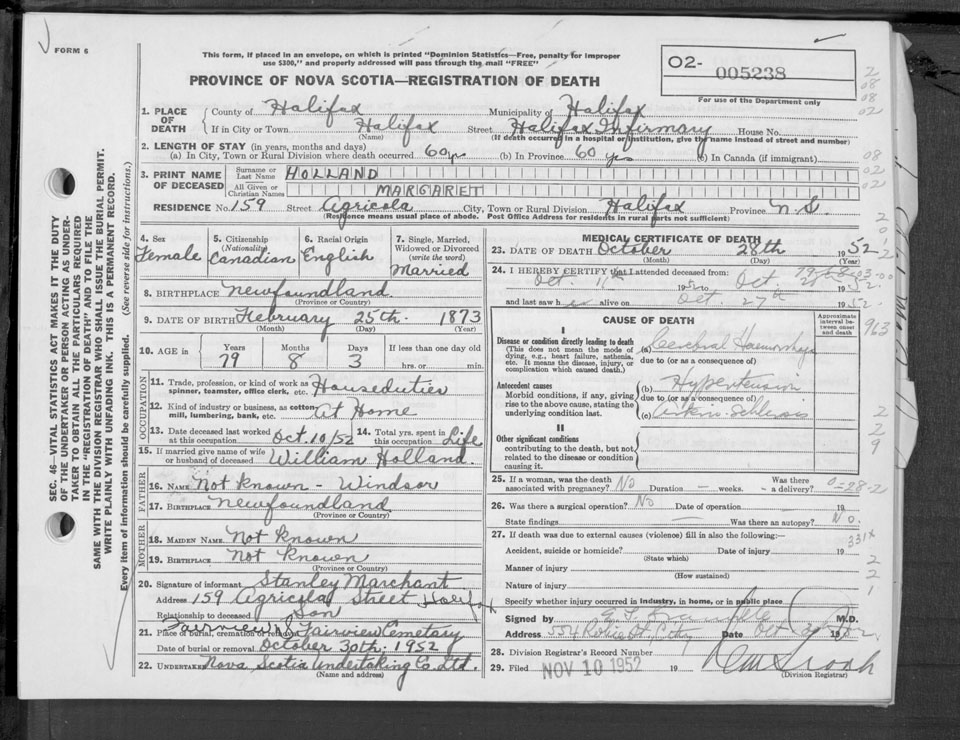 FORM 6
This form, if placed in an envelope, on which is printed "Dominion Statistics—Free, penalty for improper
use $300," and properly addressed will pass through the mail "FREE"
PROVINCE OF NOVA SCOTIA—REGISTRATION OF DEATH
O2- 005238
For use of the Department only
1. PLACE OF DEATH County of Halifax Municipality of Halifax
If in City or Town Halifax Street Halifax Infirmary House No.
(Name) (If death occurred in a hospital or institution, give the name instead of street and number)
2. LENGTH OF STAY (in years, months and days)
(a) In City, Town or Rural Division where death occurred 60 yrs (b) In Province 60 yrs (c) In Canada (if immigrant)
3. PRINT NAME OF DECEASED
Surname or Last Name HOLLAND
All Given or Christian Names MARGARET
RESIDENCE No. 159 Street Agricola City, Town or Rural Division Halifax Province N.S.
(Residence means usual place of abode. Post Office Address for residents in rural parts not sufficient)
4. Sex Female
5. Citizenship (Nationality) Canadian
6. Racial Origin English
7. Single, Married, Widowed or Divorced (write the word) Married
8. BIRTHPLACE Newfoundland
(Province or Country)
9. DATE OF BIRTH February 25th 1873
(Month) (Day) (Year)
10. AGE in Years 79 Months 8 Days 3 If less than one day old
hrs. or min.
OCCUPATION
11. Trade, profession, or kind of work as spinner, teamster, office clerk, etc. Houseduties
12. Kind of industry or business, as cotton mill, lumbering, bank, etc. At Home
13. Date deceased last worked at this occupation Oct. 10/52 14. Total yrs. spent in this occupation Life
15. If married give name of wife or husband of deceased William Holland.
FATHER
16. NAME Not Known - Windsor
17. BIRTHPLACE Newfoundland
(Province or Country)
MOTHER
18. MAIDEN NAME Not Known
19. BIRTHPLACE Not Known
(Province or Country)
20. Signature of informant Stanley Marchant
Address 159 Agricola Street Halifax
Relationship to deceased Son
21. Place of burial, cremation or removal Fairview Fairview Cemetary
Date of burial or removal October 30th. 1952
22. UNDERTAKER Nova Scotia Undertaking Co. Ltd.
(Name and address)
MEDICAL CERTIFICATE OF DEATH
23. DATE OF DEATH October 28th 1952
(Month) (Day) (Year)
24. I HEREBY CERTIFY that I attended deceased from:
Oct. 1952 to Oct. 28 1952
and last saw her alive on Oct. 27th 1952.
CAUSE OF DEATH
Approximate interval between onset and death
I
Disease or condition directly leading to death
(This does not mean the mode of dying, e.g., heart failure, asthenia, etc. It means the disease, injury, or complication which caused death.)
(a) Cerebral Haemorrhage
due to (or as a consequence of)
Antecedent causes
Morbid conditions, if any, giving rise to the above cause, stating the underlying condition last.
(b) Hypertension
due to (or as a consequence of)
(c)
II
Other significant conditions
contributing to the death, but not related to the disease or condition causing it.
25. If a woman, was the death associated with pregnancy? No Duration — weeks. Was there a delivery?
26. Was there a surgical operation? No Date of operation 19
State findings — Was there an autopsy? No.
27. If death was due to external causes (violence) fill in also the following:—
Accident, suicide or homicide? Date of injury 19
(State which)
Manner of injury
(How sustained)
Nature of injury
Specify whether injury occurred in Industry, in home, or in public place
Signed by M.D.
Address 554 Robie St. City Date Oct 1952.
28. Division Registrar's Record Number
29. Filed NOV 10 1952 19
(Division Registrar)
SEC. 46—VITAL STATISTICS ACT MAKES IT THE DUTY
OF THE UNDERTAKER OR PERSON ACTING AS UNDER-
TAKER TO OBTAIN ALL THE PARTICULARS REQUIRED
IN THE "REGISTRATION OF DEATH" AND TO FILE THE
SAME WITH THE DIVISION REGISTRAR WHO SHALL ISSUE THE BURIAL PERMIT.
WRITE PLAINLY WITH UNFADING INK. THIS IS A PERMANENT RECORD.
Every item of information should be carefully supplied. (See reverse side for instructions.)